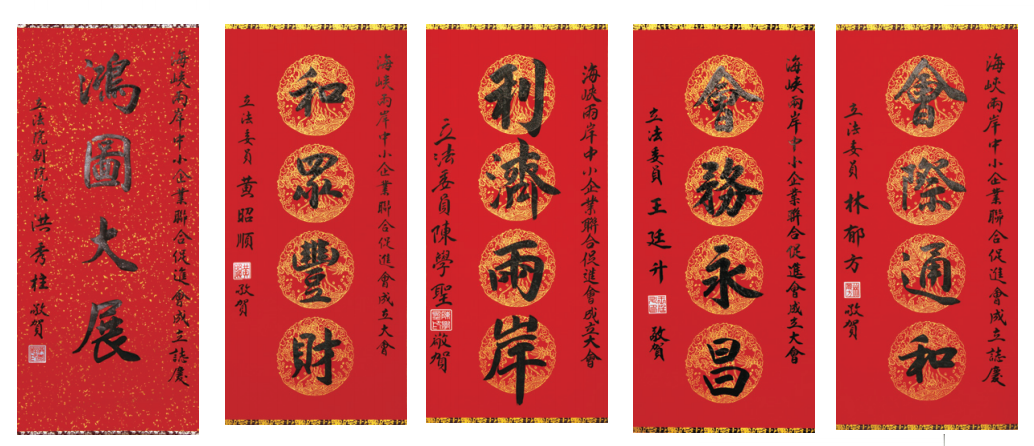 海峽兩岸中小企業聯合促進會成立誌慶
鴻圖大展
立法院副院長 洪秀柱 敬賀
海峽兩岸中小企業聯合促進會成立大會
和眾豐財
立法委員 黃昭順 敬賀
海峽兩岸中小企業聯合促進會成立大會
利濟兩岸
立法委員 陳學聖 敬賀
海峽兩岸中小企業聯合促進會成立大會
會務永昌
立法委員 王廷升 敬賀
海峽兩岸中小企業聯合促進會成立誌慶
會際通和
立法委員 林郁方 敬賀